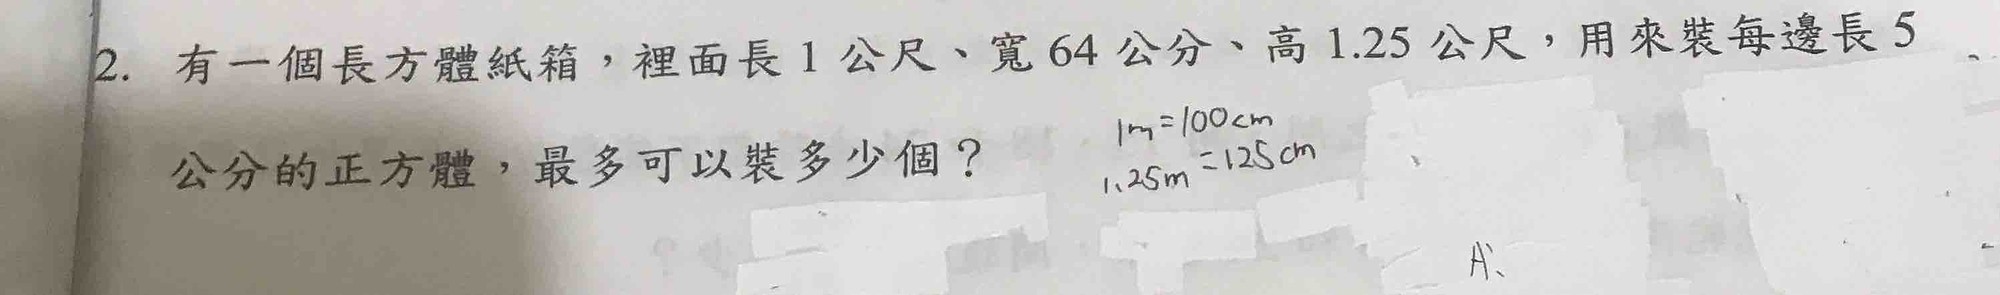 2. 有一個長方體紙箱，裡面長 1 公尺、寬 64 公分、高 1.25 公尺，用來裝每邊長 5
公分的正方體，最多可以裝多少個？
1m=100cm
1.25m=125cm
A、